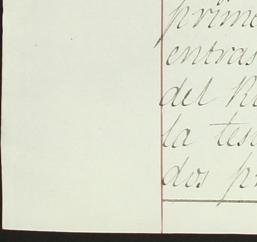 prime
entras
del Re
la tes
dos pr